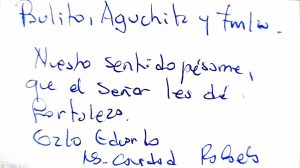 Paulito, Aguchita y Emilio.
Nuestro sentido pésame,
que el Señor les dé
fortaleza.
Eduardo
Ma. Caridad Roberto